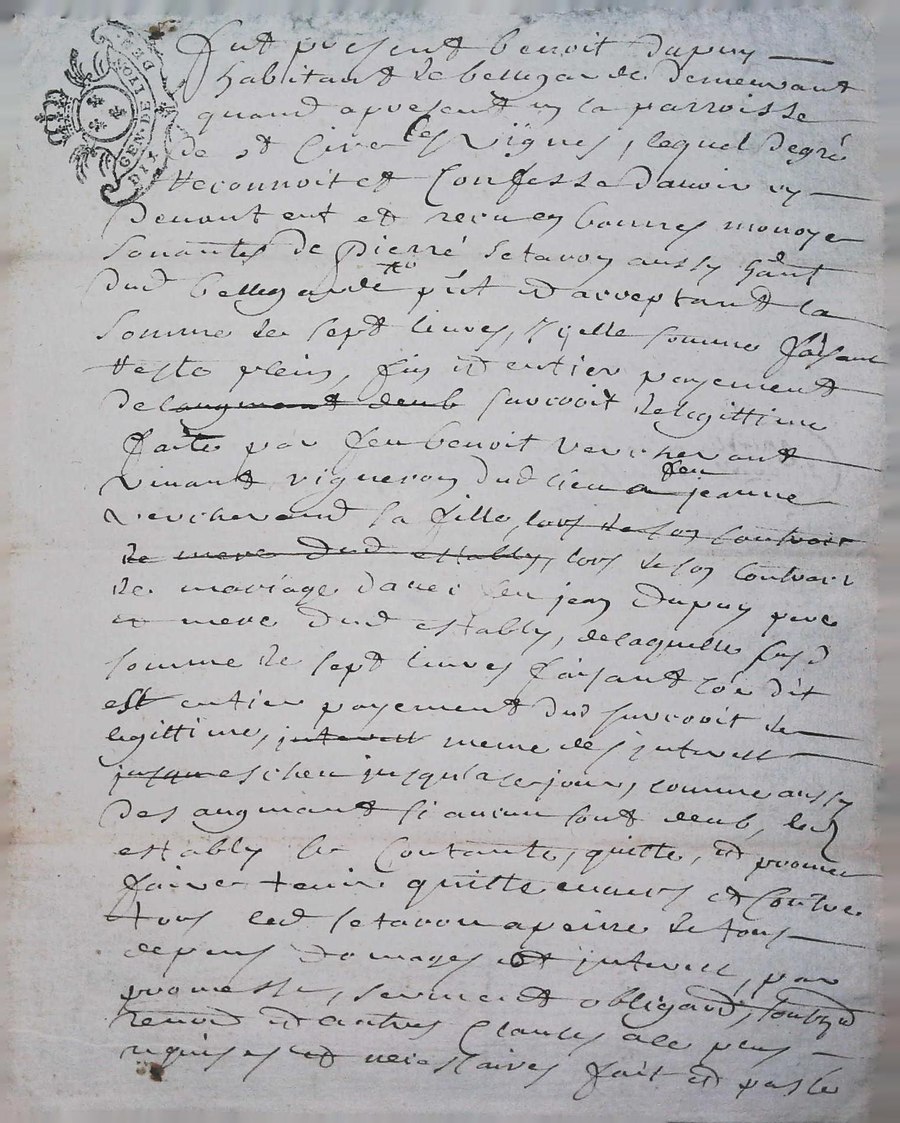 GEN. DE LYON
Fut present benoit Dupuy
habitant de bellegarde demeurant
quand apresent en la parroisse
de st Cire les Vignes, lequel degré
Reconnoit et Confesse dauoir cy
deuant eut et receu en bonnes monoyes
sonantes de pierre setavoy aussy hant
dud bellegarde pnt et acceptant la
somme de sept liures, ycelle somme faisant
reste plein, fin et entier payement
de laugmant deub surcroit de legittime
faite par feu benoit Vercherant
viuant vigneron dud lieu a feu jeanne
Vercherand sa fille, lors de son contrait
de mere dud establly, lors de son contrait
de mariage auec feu jean Dupuy pere
et mere dud establly, de laquelle susd
somme de sept liures faisant co'e dit
est entier payement dud surcroit de
legittime, interest meme des interest
jusqu escheu jusqu'a ce jour, comme aussy
des augmant si aucun sont deub, led
establly se contante, quitte, et promet
faire tenir quitte enuers et contre
tous led setavon a peine de tous
depens domages et interest, par
promesse, serment obligaon, soubz
renon et autres Clauses a ce plus
requises et necessaires fait et passé